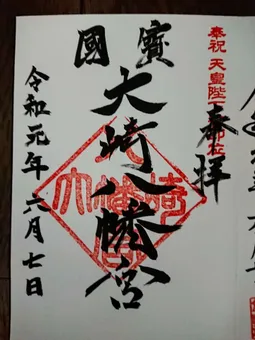 奉祝 天皇陛下御即位
奉拝
國寳
大崎八幡宮
令和元年六月七日